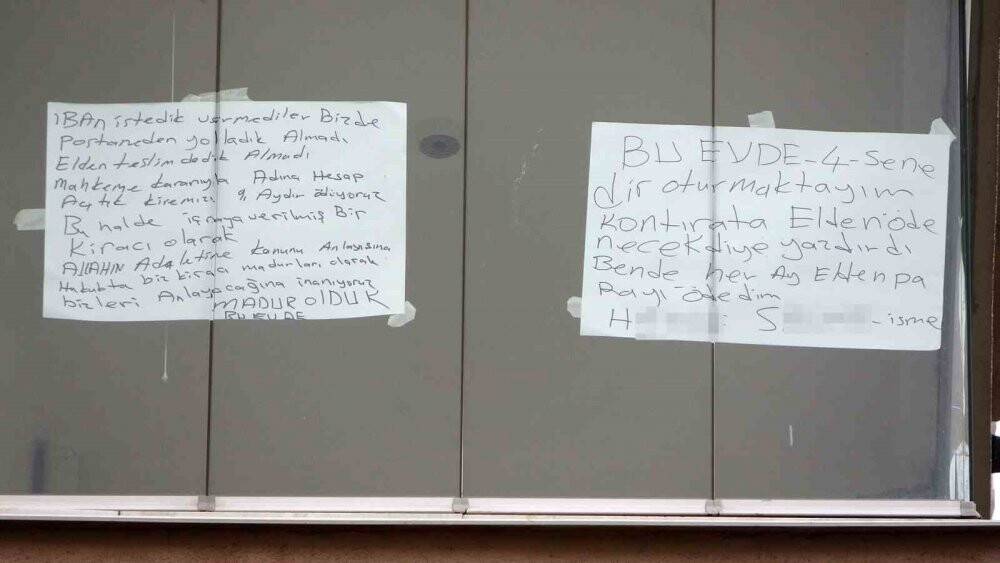 İBAN istedik vermediler Bizde
Postaneden yolladık Almadı
Elden teslim dedik Almadı
Mahkeme kararıyla Adına Hesap
Açtık kiremizi 9 Aydır ödiyoruz
Bu halde icraya verilmiş Bir
Kiracı olarak
AllAHN Adaletine kanunu Anlayışına
Hukukta biz kiracı madurları olarak
bizleri Anlayacağına inanıyoruz
MADUR OlDUK
BU EVDE
BU EVDE-4-Sene
dir oturmaktayım
kontırata Elden öde
necek diye yazdırdı
Bende her Ay Elten pa
Rayı ödedim
H S -isme